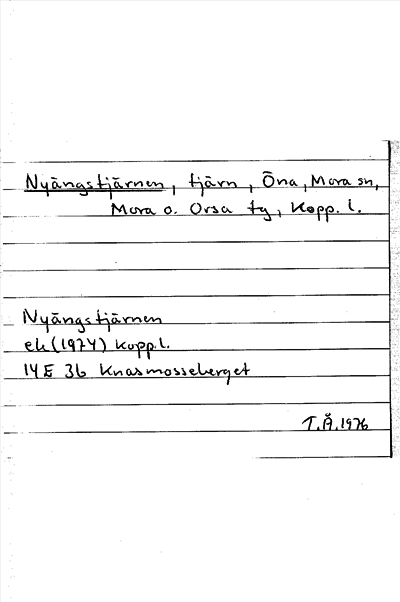 Nyängstjärnen, tjärn, Öna, Mora sn,
Mora o. Orsa tg, Kopp. l.
Nyängstjärnen
ek (1974) Kopp. l.
14 E 3b Knasmosseberget
T.Å. 1976